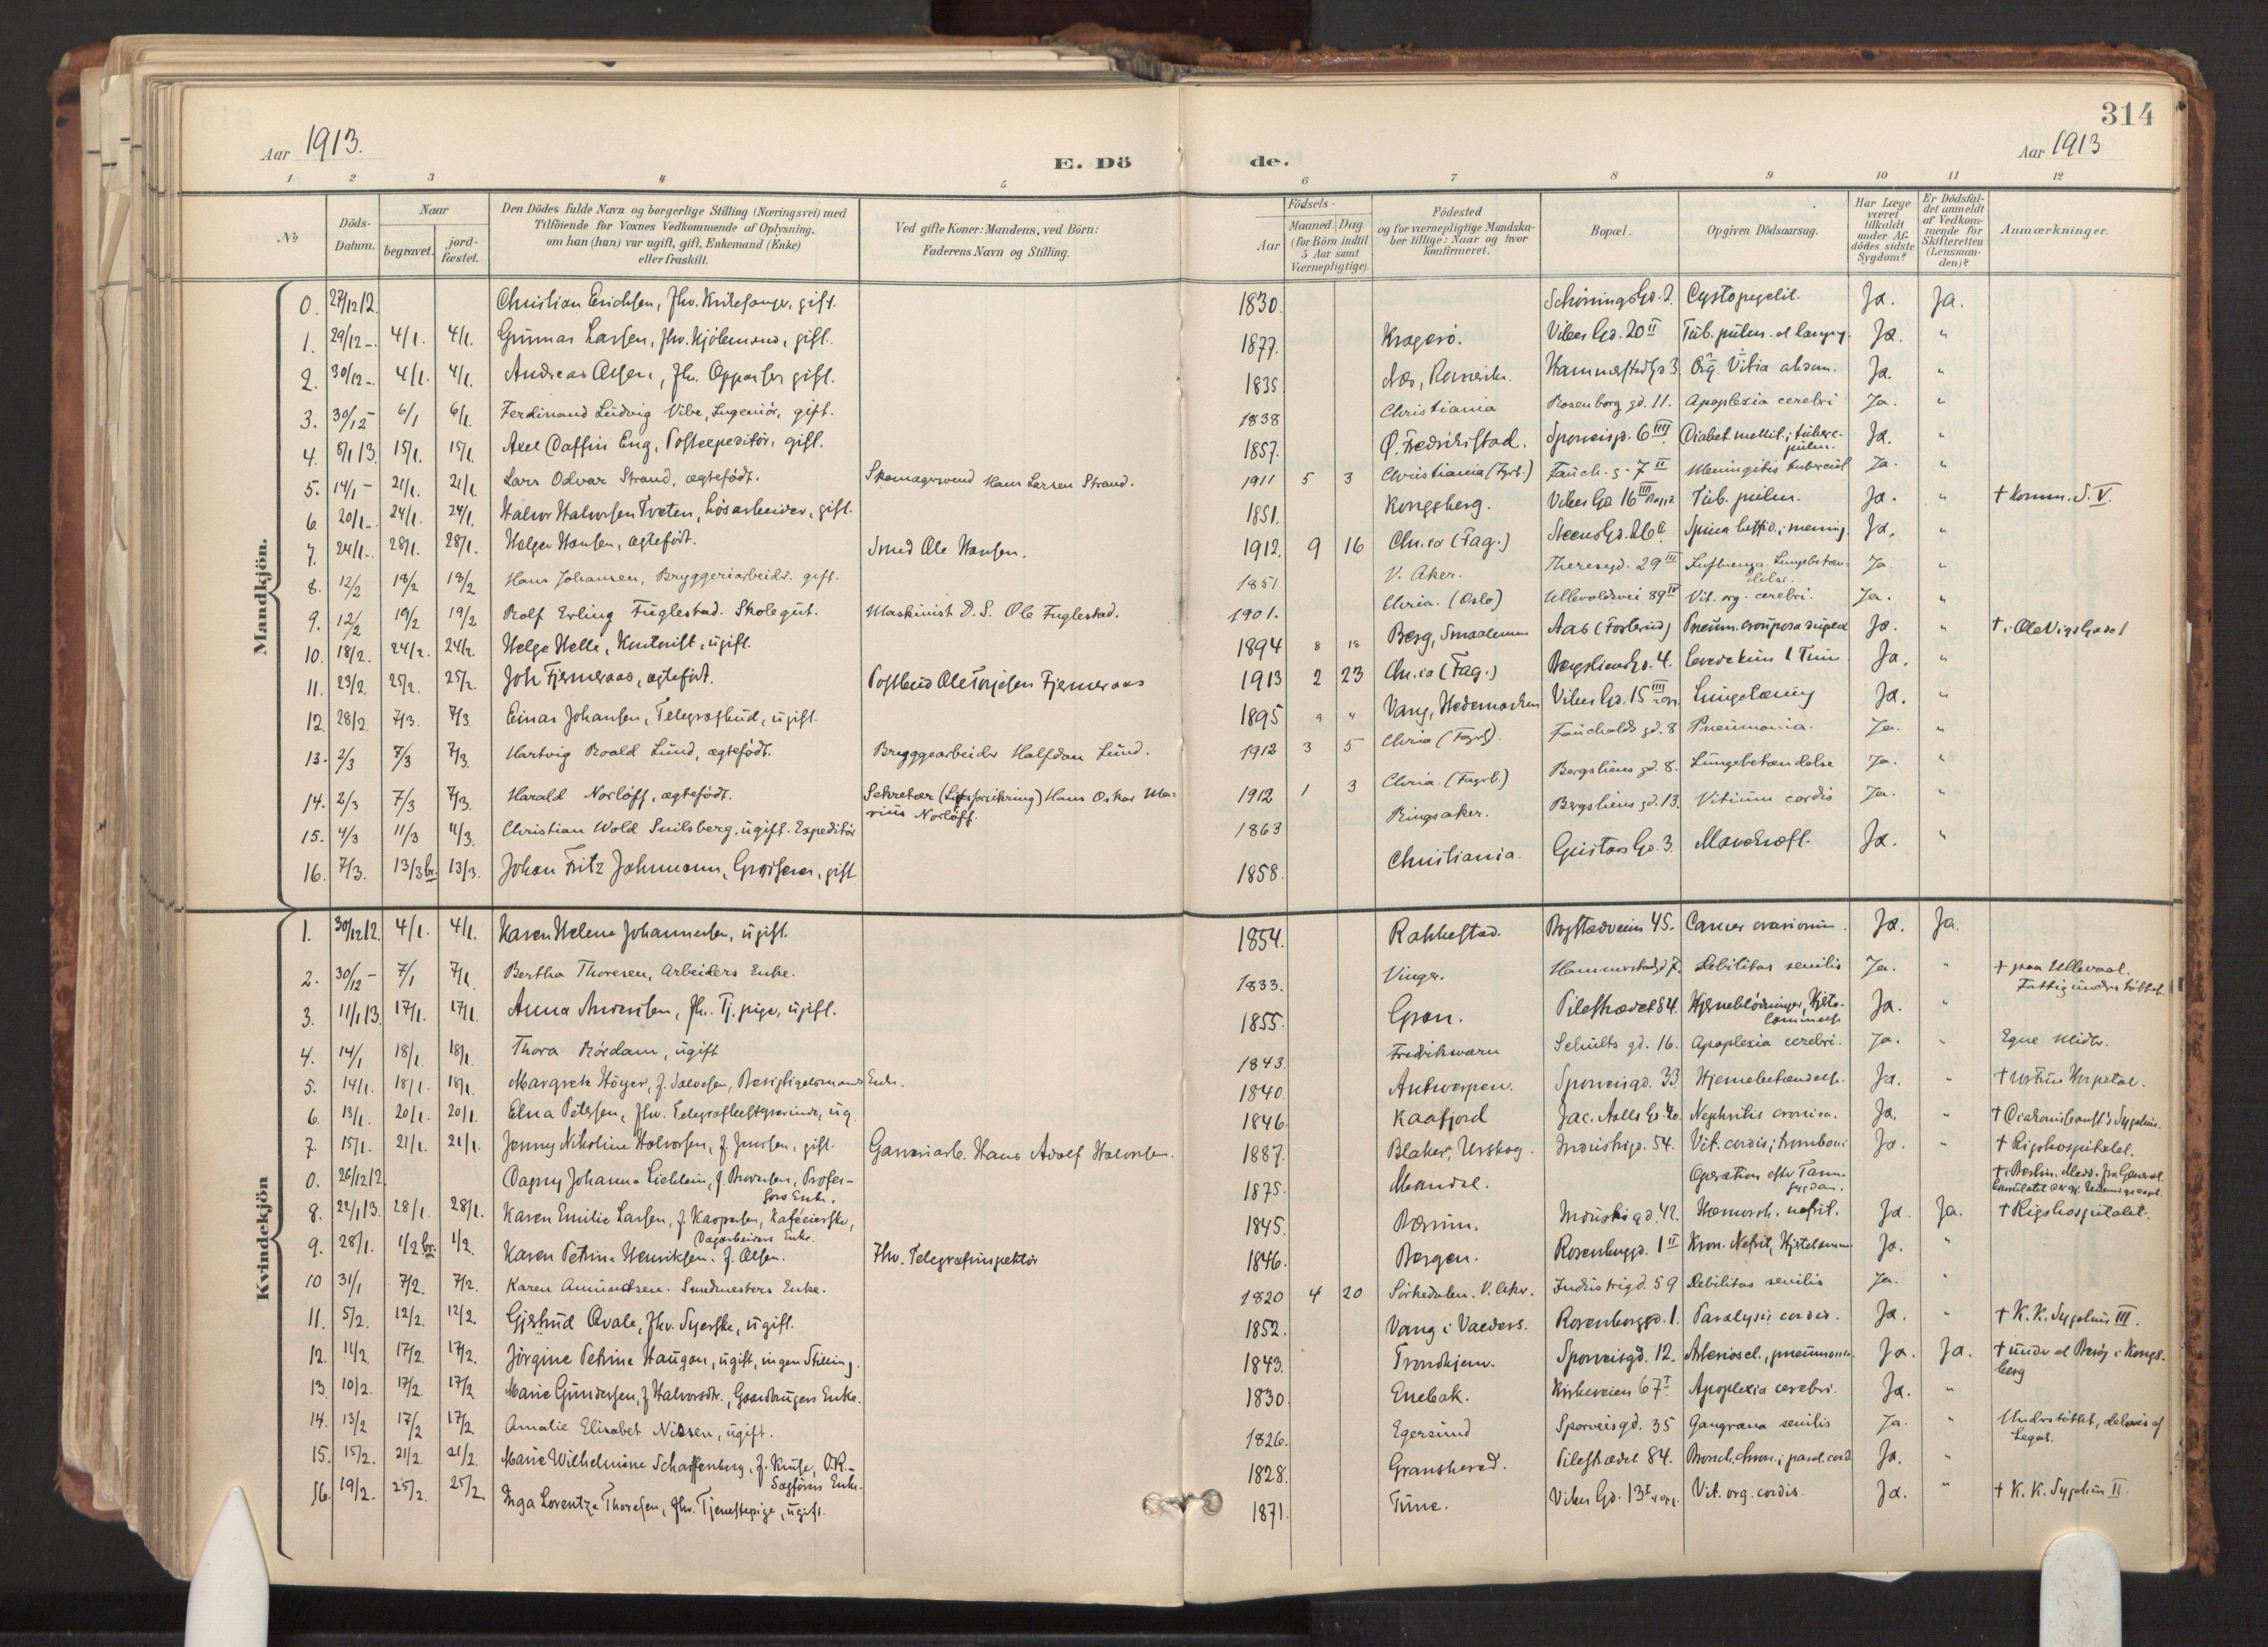 314
Aar 1913.
E. Dö de.
Aar 1913
1 2 3 4 5 6 7 8 9 10 11 12
No
Döds-Datum.
Naar
begravet.
jord-fæstet.
Den Dödes fulde Navn og borgerlige Stilling (Næringsvei) med
Tilföiende for Voxnes Vedkommende af Oplysning,
om han (hun) var ugift, gift, Enkemand (Enke)
eller fraskilt.
Ved gifte Koner: Mandens, ved Börn:
Faderens Navn og Stilling.
Födsels-
Aar
Maaned Dag
(for Börn indtil
5 Aar samt
Værnepligtige).
Födested
og for værnepligtige Mandska-
ber tillige: Naar og hvor
konfirmeret.
Bopæl.
Opgiven Dödsaarsag.
Har Læge
været
tilkaldt
under Af-
dödes sidste
Sygdom?
Er Dödsfal-
det anmeldt
af Vedkom-
mende for
Skifteretten
(Lensman-
den)?
Anmærkninger.
Mandkjön.
0. 27/12 12. Christian Erichsen, fhv. Kirkesanger, gift. 1830. Schöningsgd. 2. Cystopyelit. Ja. Ja.
1. 29/12 -. 4/1. 4/1. Gunnar Larsen, fhv. Kjöbmand, gift. 1877. Kragerö. Vibes Gd. 20 II Tub. pulm. et laryng. Ja. "
2. 30/12 -. 4/1. 4/1. Andreas Olsen, fhv. Oppasser gift. 1835 Næs, Romerike. Hammerstadgd 3. Org. Vitia Ja. "
3. 30/12 - 6/1 6/1. Ferdinand Ludvig Vibe, Ingeniör, gift. 1838 Christiania Rosenborg gd. 11. Apoplexia cerebri Ja. "
4. 8/1 13. 15/1. 15/1. Axel Daffin Eng, Postexpeditör, gift. 1857. Ö. Fredrikstad. Sporveisgd. 6 III. Diabet. mellit.; tuberc. pulm. Ja. "
5. 14/1 - 21/1. 21/1. Lars Odvar Strand, ægtefödt. Skomagersvend Hans Larsen Strand. 1911 5 3 Christiania (Fgrb.) Fauch. g. 7 II Meningitis tubercul Ja. "
6. 20/1 -. 24/1. 24/1. Halvor Halvorsen Tveten, Lösarbeider, gift. 1851. Kongsberg. Vibes Gd 16 III Tub. pulm. Ja. " † Komm. S. V.
7. 24/1 -. 28/1. 28/1. Holger Hansen, ægtefödt. Smed Ole Hansen. 1912. 9 16 Chr.ia (Fag.) Steens Gd. 26 II. Spina biffid.; mening. Ja. "
8. 12/2 18/2 18/2 Hans Johansen, Bryggeriarbeider. gift. 1851 V. Aker. Theresegd. 29 III Influenza. Lungebetændelse. Ja. "
9. 12/2 19/2 19/2 Rolf Erling Fuglestad. Skolegut. Maskinist D. S. Ole Fuglestad. 1901. Chria. (Oslo) Ullevoldsvei 89 IV Vit. org. cerebri. Ja. "
10. 18/2. 24/2. 24/2. Helge Helle, Kontorist, ugift. 1894 8 18 Berg, Smaalenene Aas (Fosterud) Pneum. crouposa duplex Ja. " †
11. 23/2. 25/2. 25/2. Joh Fjermeraas, ægtefödt. Postbud Ole Torjesen Fjermeraas 1913 2 23 Chr.ia (Fag.) Bergsliens Gd. 4. Levede kun 1 Time. Ja. "
12. 28/2. 7/3. 7/3. Einar Johansen, Telegrafbud, ugift. 1895 " " Vang, Hedemarken Vibes Gd. 15 III Ja. "
13. 2/3 7/3 7/3. Hartvig Roald Lund, ægtefödt. Bryggearbeider Halfdan Lund. 1912 3 5 Chria (Fgrb). Fauchalds gd. 8 Pneumonia. Ja. "
14. 2/3 7/3 7/3. Harald Norlöff, ægtefödt. Sekretær (Livsforsikring) Hans Oskar Marius Norlöff. 1912 1 3 Chria. (Fagrb.) Bergsliens gd. 8. Lungebetændelse Ja. "
15. 4/3 11/3 11/3. Christian Wold Snilsberg, ugift. Expeditör 1863 Ringsaker. Bergsliens gd. 13. Vitium cordis Ja. "
16. 7/3. 13/3 br. 13/3. Johan Fritz Jahnmann, Grosserer, gift 1858. Christiania. Gustavs Gd. 3. Mavekræft. Ja. "
Kvindekjön
1. 30/12 12. 4/1. 4/1. Karen Helene Johannesen, ugift. 1854. Rakkestad. Bogstadveien 45. Cancer ovariorum. Ja. Ja.
2. 30/12 - 7/1 7/1. Bertha Thoresen, Arbeiders Enke. 1833. Vinger. Hammerstadgd 7. Debilitas senilis Ja. " † paa Ullevaal. Fattigunderstöttet.
3. 11/1 13. 17/1. 17/1. Anna Andersen, fhv. Tj. pige, ugift. 1855. Gran. Pilestrædet 84. Hjerneblödninger, Hjertelammelse Ja. "
4. 14/1 18/1. 18/1. Thora Rördam, ugift 1843. Fredriksværn Schults gd. 16. Apoplexia cerebri. Ja. " Egne Midler.
5. 14/1. 18/1. 18/1. Margrete Höyer, f. Salvesen, Besigtigelsesmands Enke. 1840. Antwerpen. Sporveisgd. 33. Hjernebetændelse. Ja. " † Hospital.
6. 13/1. 20/1. 20/1. Elna Petersen, fhv. Telegrafbestyrerinde, ug. 1846. Kaafjord Jac. Aalls Gd 40. Nephritis cronica. Ja. " † Diakonissanst's Sygehus.
7. 15/1. 21/1. 21/1. Jenny Nikoline Halvorsen, f. Jensen, gift. Garveriarb. Hans Adolf Halvorsen. 1887. Blaker, Urskog. Industrigd. 54. Vit. cordis; tromboni Ja. " † Rigshospitalet.
0. 26/12 12. Dagny Johanna Lieblein, f. Professors Enke. 1875. Mandal. Operation efter Tarmsygdom. † i Berlin. Medd. fra General-
8. 22/1 13. 28/1. 28/1. Karen Emilie Larsen, f. Kaspersen, Kaféeierske, Dagarbeiders Enke. 1845. Bærum. Industrigd. 42. Hæmorrh. nefrit. Ja. Ja. † Rigshospitalet.
9. 28/1. 1/2 br. 1/2. Karen Petrine Henriksen. f. Olsen. Fhv. Telegrafinspektör 1846. Bergen. Rosenborggd. 1 II Kron. Nefrit, Hjertelamm Ja. "
10 31/1 7/2. 7/2. Karen Amundsen. Smedmesters Enke. 1820 4 20 Sörkedalen. V. Aker. Industrigd. 59 Debilitas senilis Ja. "
11. 5/2. 12/2. 12/2. Gjertrud Qvale, fhv. Syerske, ugift. 1852. Vang i Valders. Rosenborggd. 1. Paralysis cordis. Ja. " † K. K. Sygehus III.
12. 11/2 17/2. 17/2. Jörgine Petrine Haugan, ugift, ingen Stilling. 1843. Trondhjem. Sporveisgd. 12. Arterioscl., pneumonia. Ja. Ja. † under et Besög i Kongsberg
13. 10/2. 17/2. 17/2. Marie Gundersen, f. Halvorsdtr., Gaardbrugers Enke. 1830. Enebak. Kirkeveien 67 I. Apoplexia cerebri. Ja. "
14. 13/2 17/2 17/2 Amalie Elisabet Nissen, ugift. 1826. Egersund Sporveisgd. 35 Gangræna senilis Ja. " Understöttet, delvis af Legat.
15. 15/2. 21/2. 21/2. Marie Wilhelmine Scharffenberg, f. Kruse, O.R.-Sagförers Enke. 1828. Gransherad. Pilestrædet 84. Bronch. chron.; paral. cord Ja. "
16. 19/2. 25/2. 25/2. Inga Lorentze Thoresen, fhv. Tjenestepige, ugift. 1871. Tune. Vibes Gd. 13 I Vit. org. cordis. Ja. " † K. K. Sygehus II.